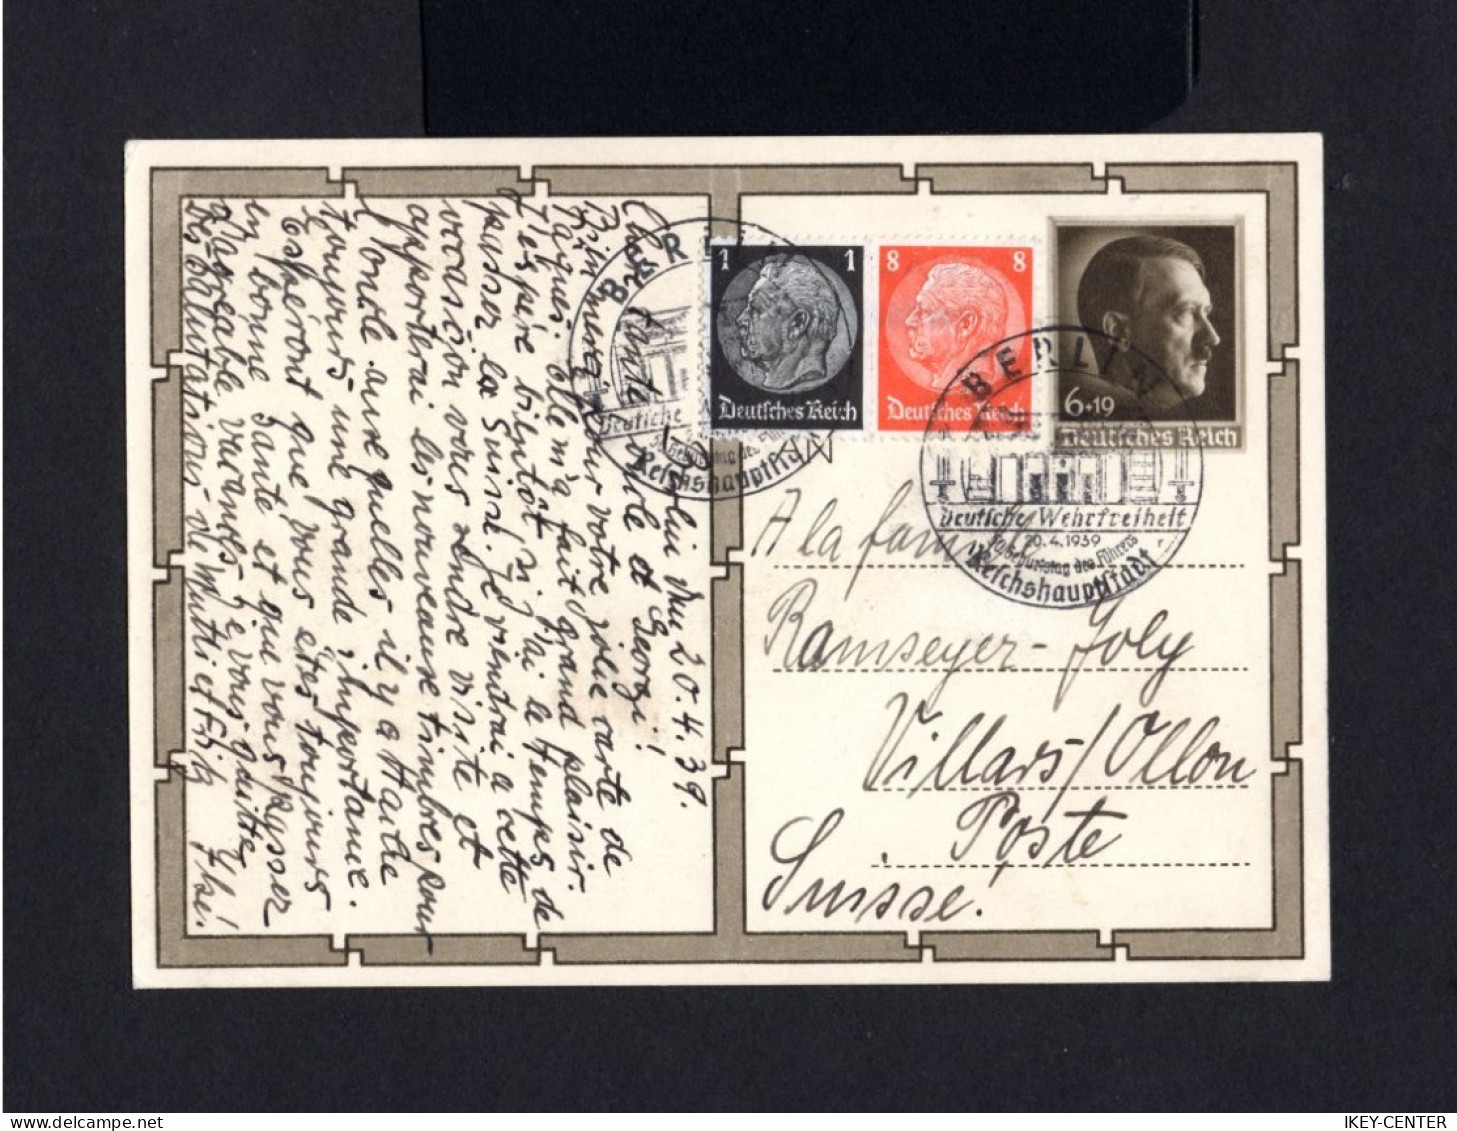 Berlin du 20.4.39.
Chère tante Nicole et Georgi!
Bien merci pour votre jolie carte de
Pâques elle m'a fait grand plaisir.
J'espère bientôt si j'ai le temps de
passer la Suisse. Je viendrai à cette
occasion vous rendre visite et
apporterai les nouveaux timbres pour
l'oncle
toujours une grande importance.
Espéront que vous êtes toujours
en bonne santé et que vous passer
d'agréable vacances je vous quitte
des salutations de Mutti et Fritz
BERLIN
Deutsche
Geburtstag des Führers
Reichshauptstadt
1 1
Deutsches Reich
8 8
Deutsches Reich
6+19
Deutsches Reich
BERLIN
Deutsche Wehrfreiheit
20.4.1939
50. Geburtstag des Führers
Reichshauptstadt
AN
A la famille
Ramseyer-Joly
Villars/Ollon
Poste
Suisse!
IKEY-CENTER